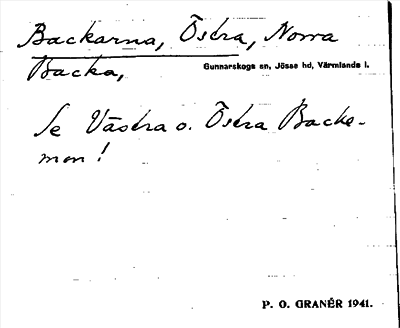 Backarna, Östra, Norra
Backa,
Gunnarskogs sn, Jösse hd, Värmlands l.
Se Västra o. Östra Backe-
mon!
P. O. GRANÉR 1941.